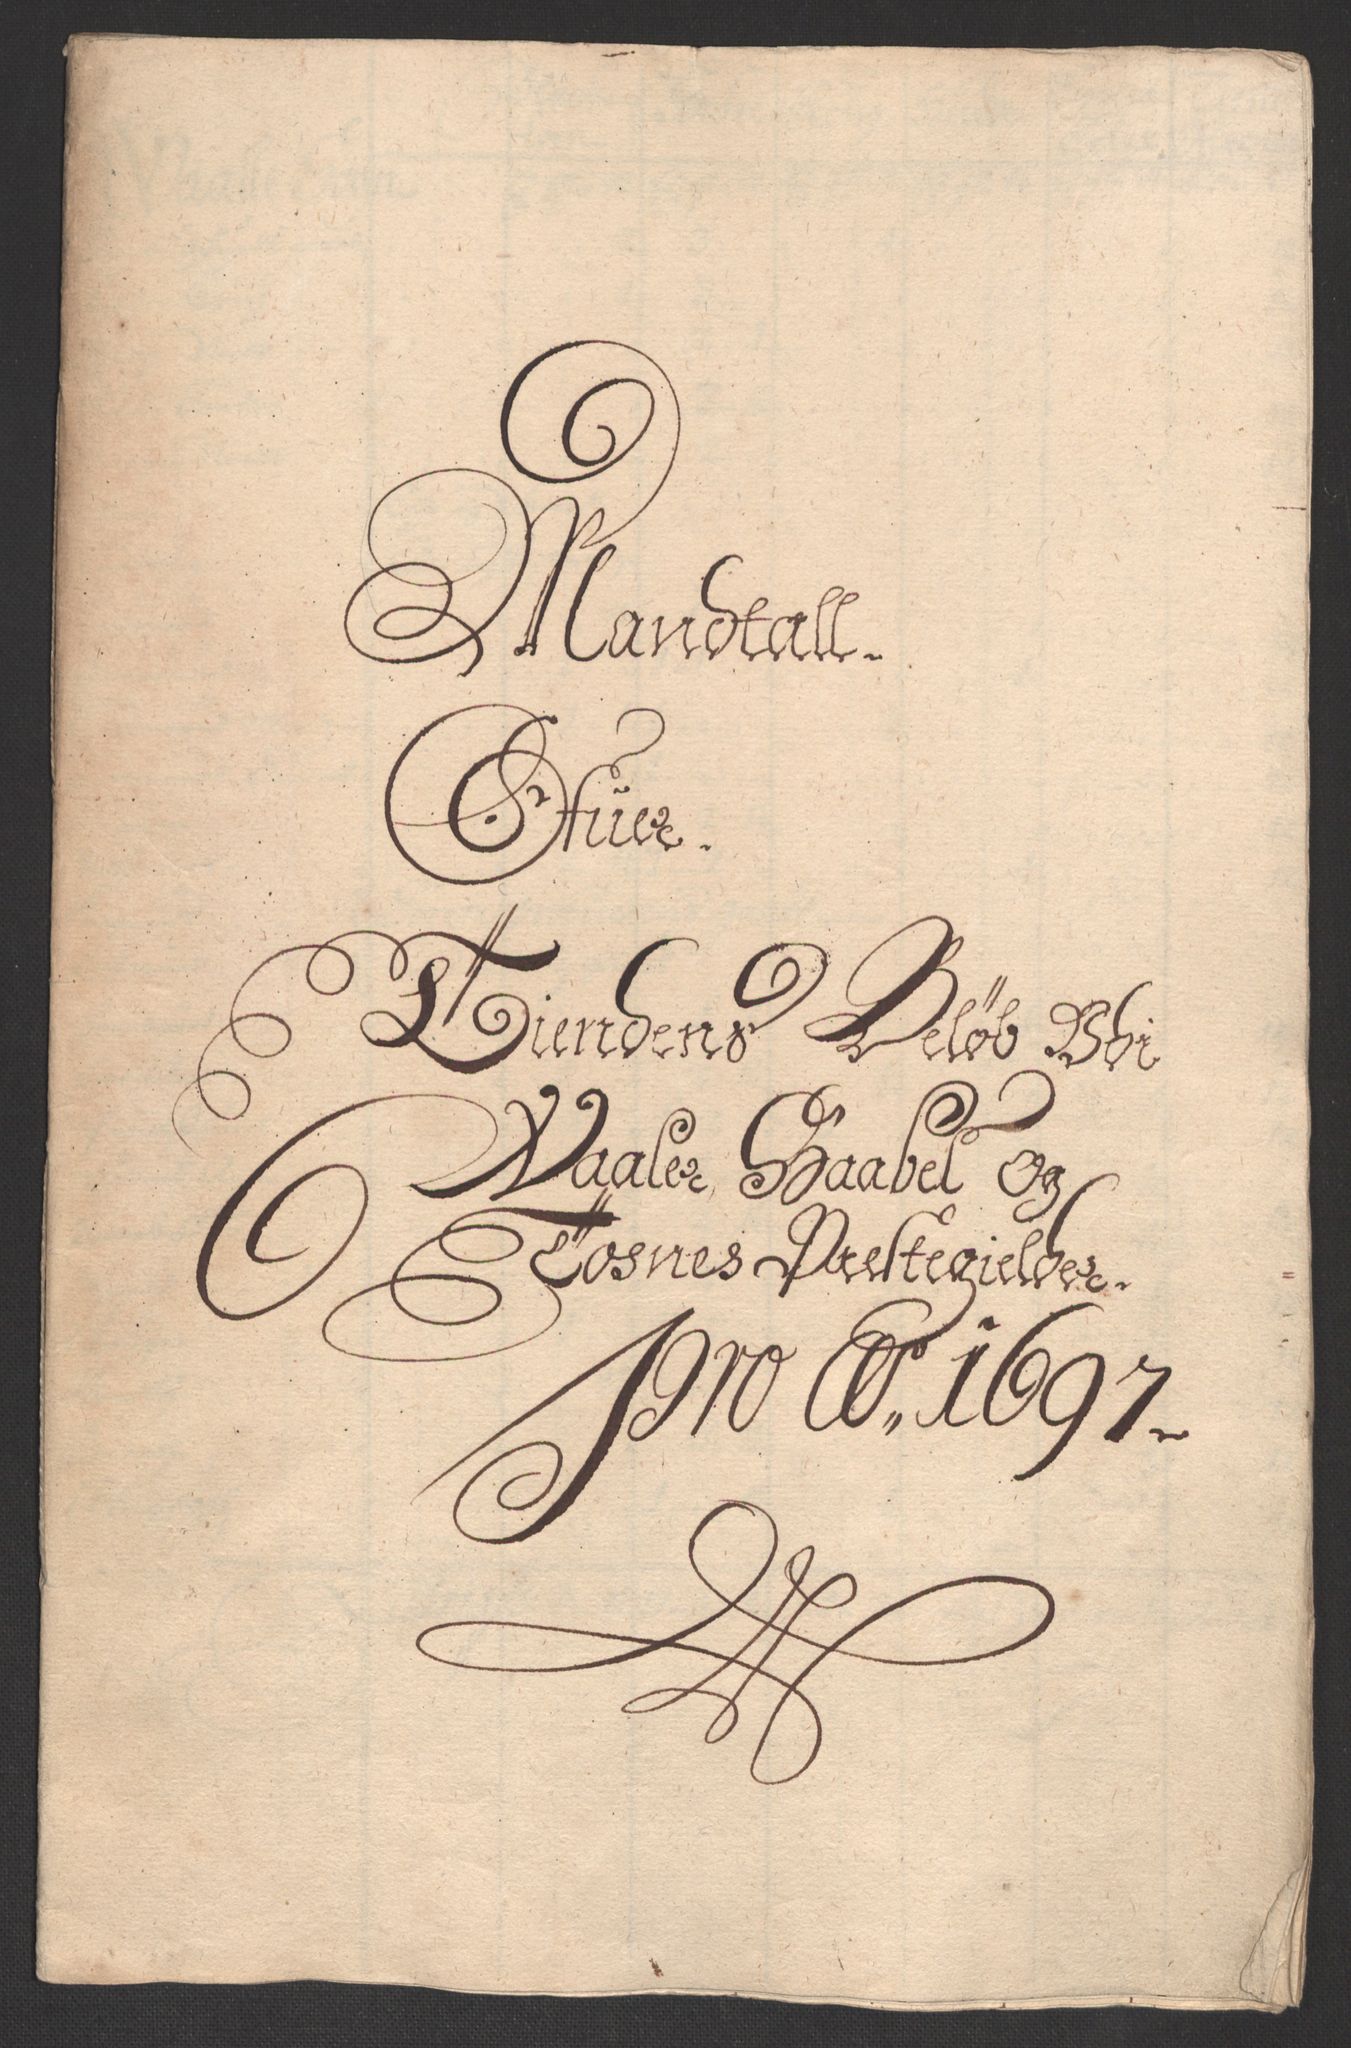 Mandtall.
Ofuer.
Tiendens Beløb Udi
Vaaler, Saabel og
Tosnes Prestegielder.
Pro Ao. 1697